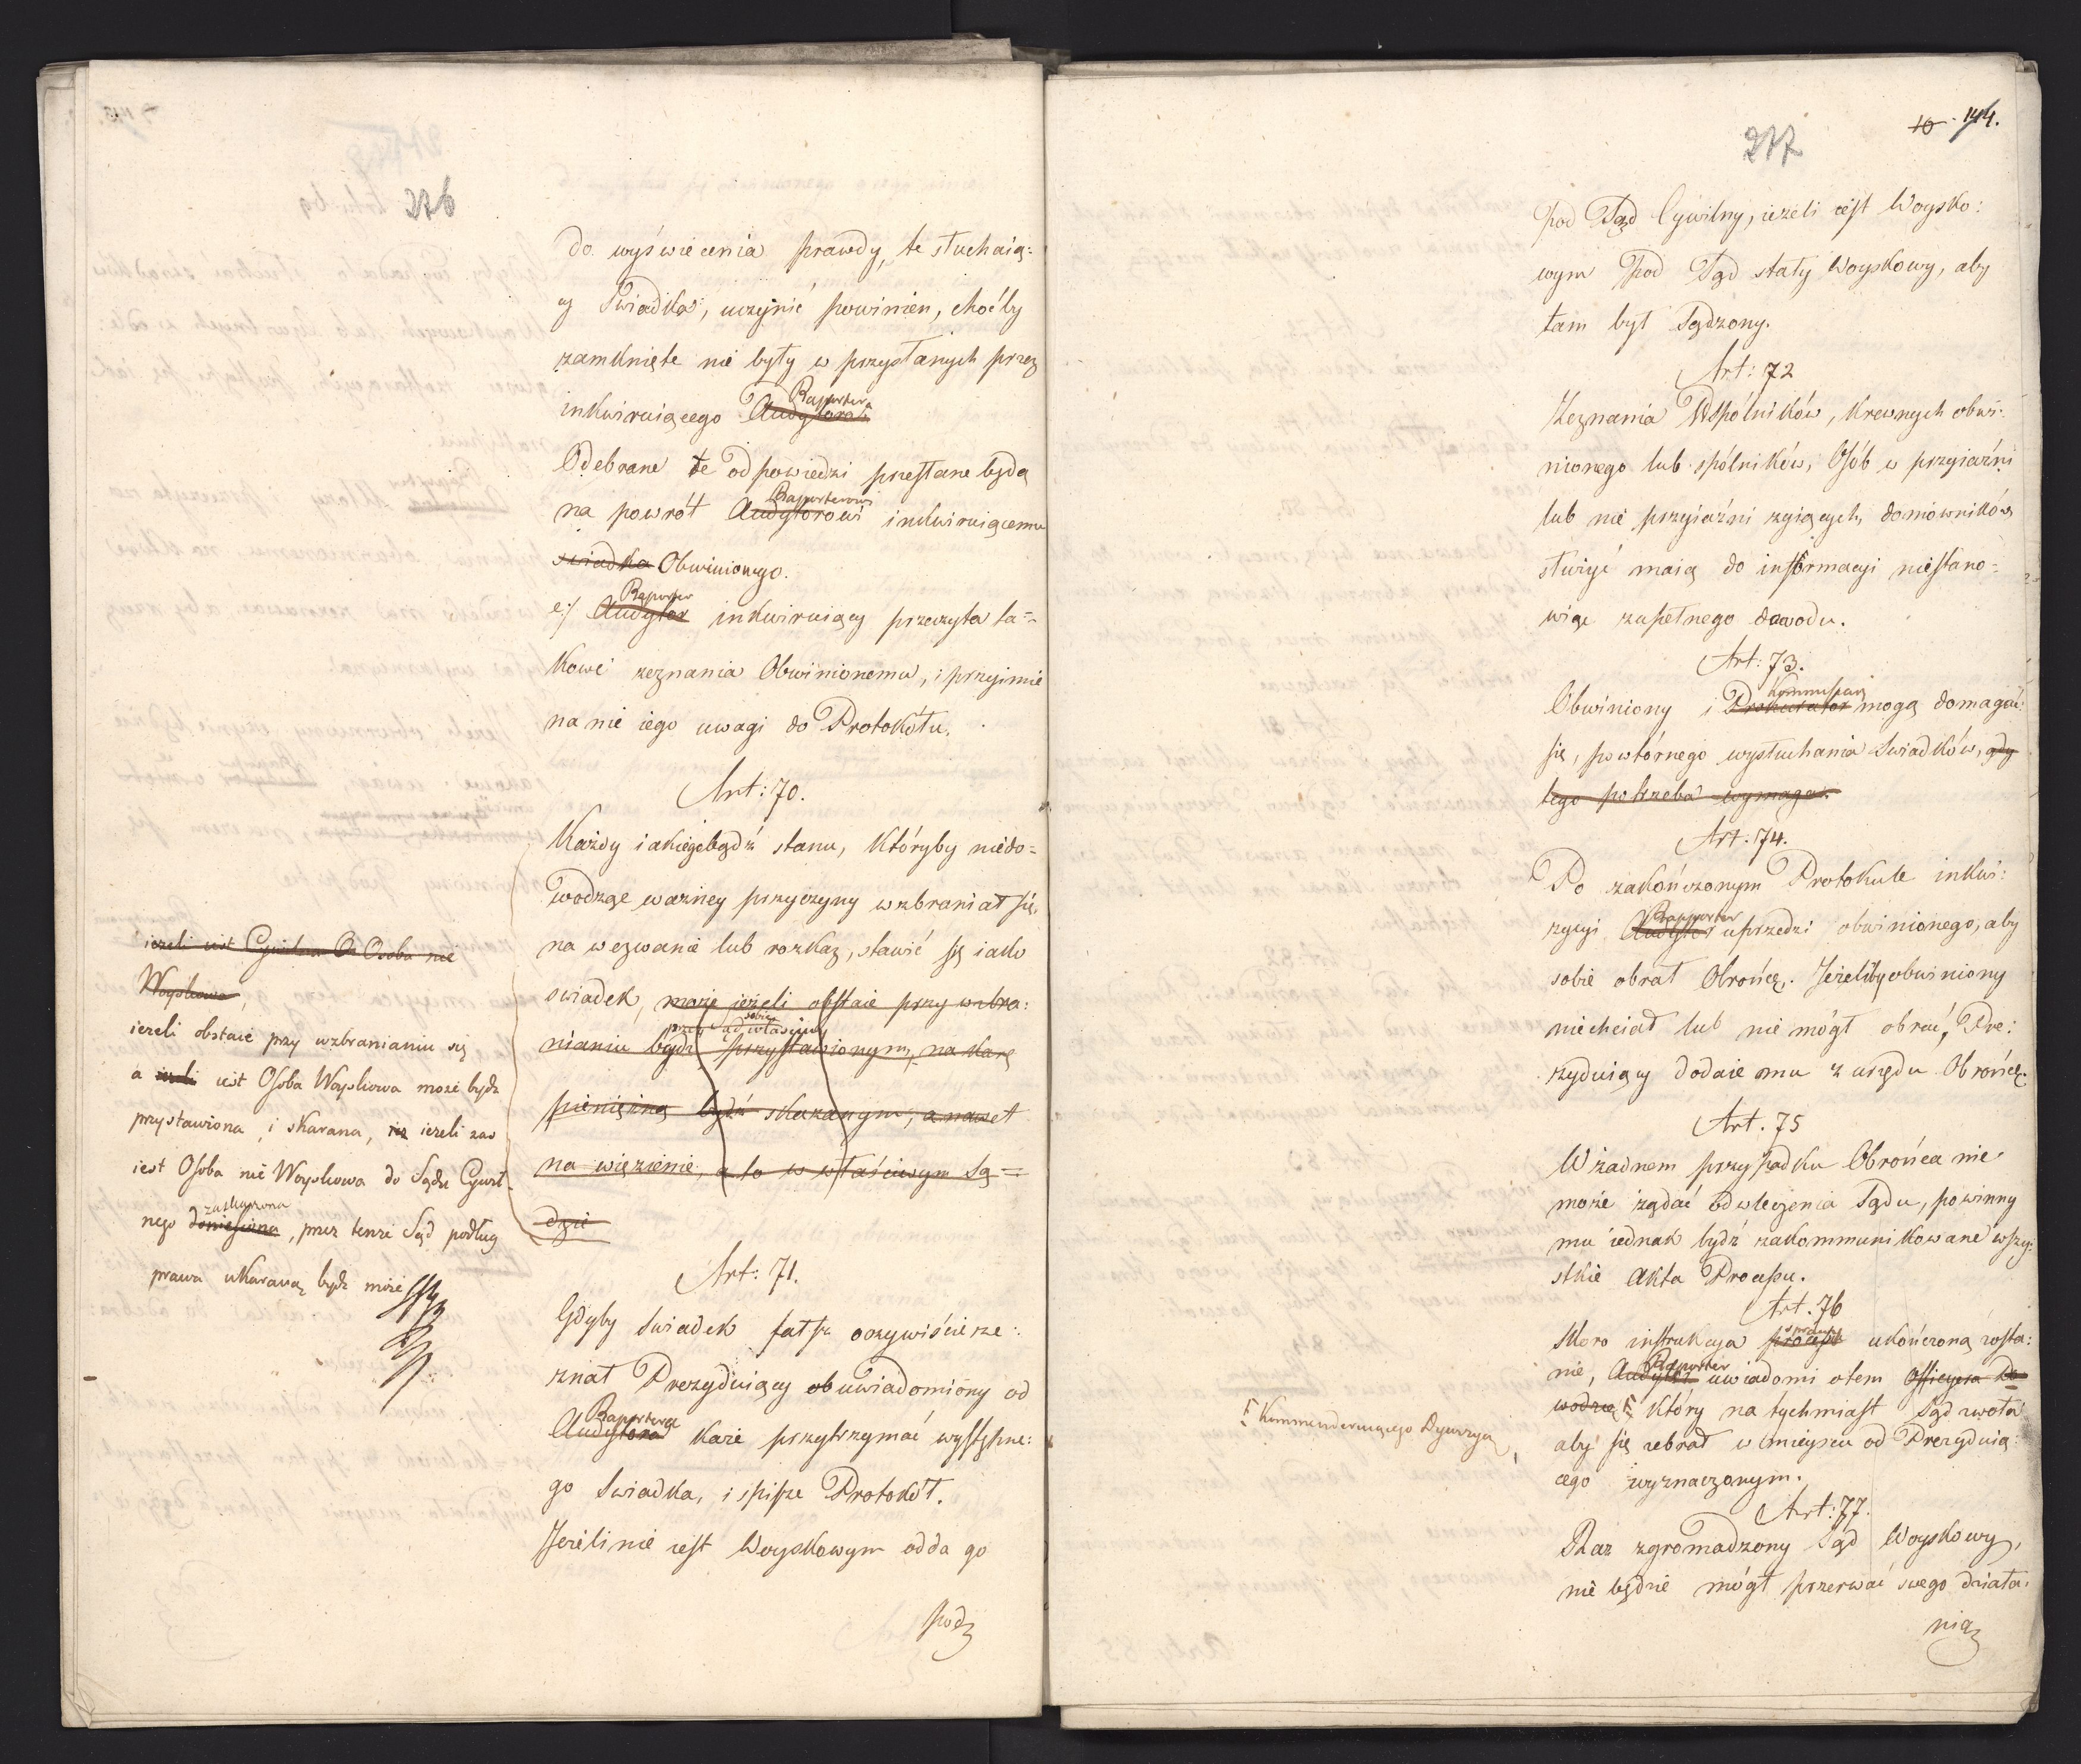 276
do wyświecenia prawdy, te słuchaią=
cy Swiadka, uczynić powinien, choćby
zamknięte nie były w przysłanych przez
Raportera
inkwiruiącego Audytora
Odebrane te odpowiedzi przesłane będą
Raporterowi
na powrót Audytorowi inkwiruiącemu
swiadka Obwinionego.
Raporter
e:/ Audytor inkwiruiący przeczyta ta=
kowe zeznania Obwinionemu, i przyimie
na nie iego uwagi do Protokółu.
Art: 70.
Każdy iakiegobądź stanu, któryby niedo=
wodząc ważney przyczyny wzbraniał się,
na wezwanie lub rozkaz, stawić się iako
swiadek, może ieżeli obstaie przy wzbra:
przez Sąd sobie właściwy
nianiu bydź przystawionym, na karę
pieniężną bydź skazanym, a nawet
na więzienie, a to w właściwym Są=
dzie
ieżeli iest Cywilna Osoba nie
Woyskowa,
ieżeli obstaie przy wzbranianiu się
a ieżeli iest Osoba Woyskowa może bydź
przystawiona, i skarana, ieżeli zas
iest Osoba nie Woyskowa do Sądu Cywil-
zaskarżona
nego doniesiona, przez tenże Sąd podług
prawa ukaraną bydź może
Art: 71.
Gdyby Swiadek fałsz oczywiście ze:
znał Prezyduiący obuwiadomiony od
Raportera
Audytora każe przytrzymać występne:
go Swiadka, i spisze Protokół.
Jeżeli nie iest Woyskowym odda go
pod
277
10. 144.
pod Sąd Cywilny, ieżeli iest Woysko:
wym pod Sąd stały Woyskowy, aby
tam był Sądzony.
Art: 72
Zeznania Wspólników, krewnych obwi:
nionego lub spólników, Osób w przyiaźni
lub nie przyiaźni zyiących, domowników
służyć maią do informacyi niestano=
wiąc zupełnego dowodu.
Art: 73.
Kommissarz
Obwiniony i Prokurator mogą domagać
się, powtórnego wysłuchania Swiadków, gdy
tego potrzeba wymaga.
Art. 74.
Po zakończonym Protokule inkwi:
Rapporter
zycyi Audytor uprzedzi obwinionego, aby
sobie obrał Obrońcę. Jeżeliby obwiniony
niechciał lub nie mógł obrać, Pre:
zyduiący dodaie mu z urzędu Obrońcę.
Art. 75
W żadnem przypadku Obrońca nie
może żądać odwleczenia Sądu, powinny
mu iednak bydź zakommunikowane wszy:
stkie Akta Processu.
Art. 76
sprawy
Skoro instrukcya processu ukończoną zosta:
Raporter
nie, Audytor uwiadomi o tem Officyera do
wodzcę który natychmiast Sąd zwoła
Kommenderuiącego Dywizyą,
aby się zebrał w mieyscu od Prezyduią:
cego wyznaczonym.
Art: 77.
Raz zgromadzony Sąd Woyskowy,
nie będzie mógł przerwać swego działa:
nia